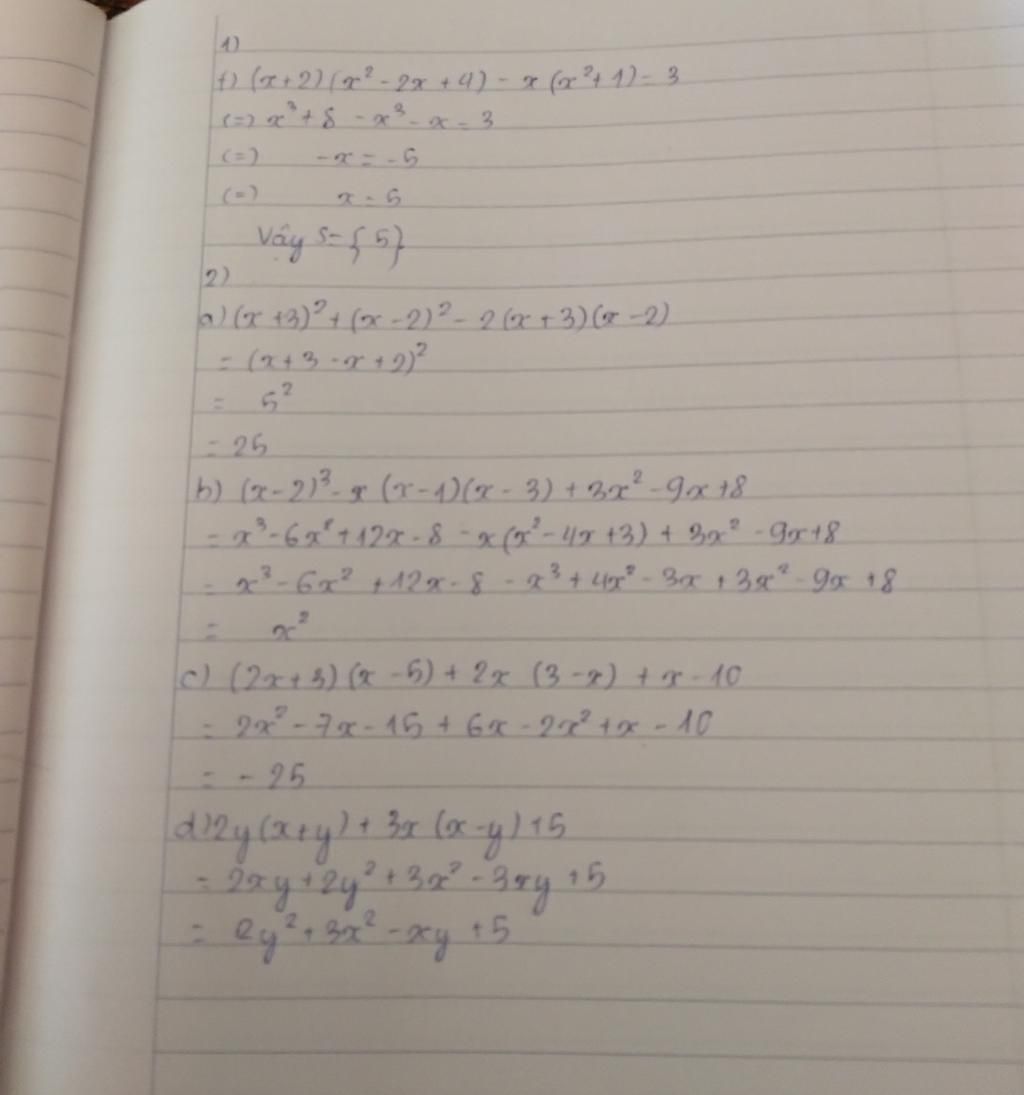 1)
f) (x+2)(x² - 2x + 4) - x(x²+1) = 3
(=) x³ + 8 - x³ - x = 3
(=) -x = -5
(=) x = 5
Vậy S = {5}
2)
a) (x+3)² + (x-2)² - 2(x+3)(x-2)
= (x+3 - x+2)²
= 5²
= 25
b) (x-2)³ - x(x-1)(x-3) + 3x² - 9x + 8
= x³ - 6x² + 12x - 8 - x(x² - 4x + 3) + 3x² - 9x + 8
= x³ - 6x² + 12x - 8 - x³ + 4x² - 3x + 3x² - 9x + 8
= x²
c) (2x+3)(x-5) + 2x(3-x) + x - 10
= 2x² - 7x - 15 + 6x - 2x² + x - 10
= -25
d) 2y(x+y) + 3x(x-y) + 5
= 2xy + 2y² + 3x² - 3xy + 5
= 2y² + 3x² - xy + 5